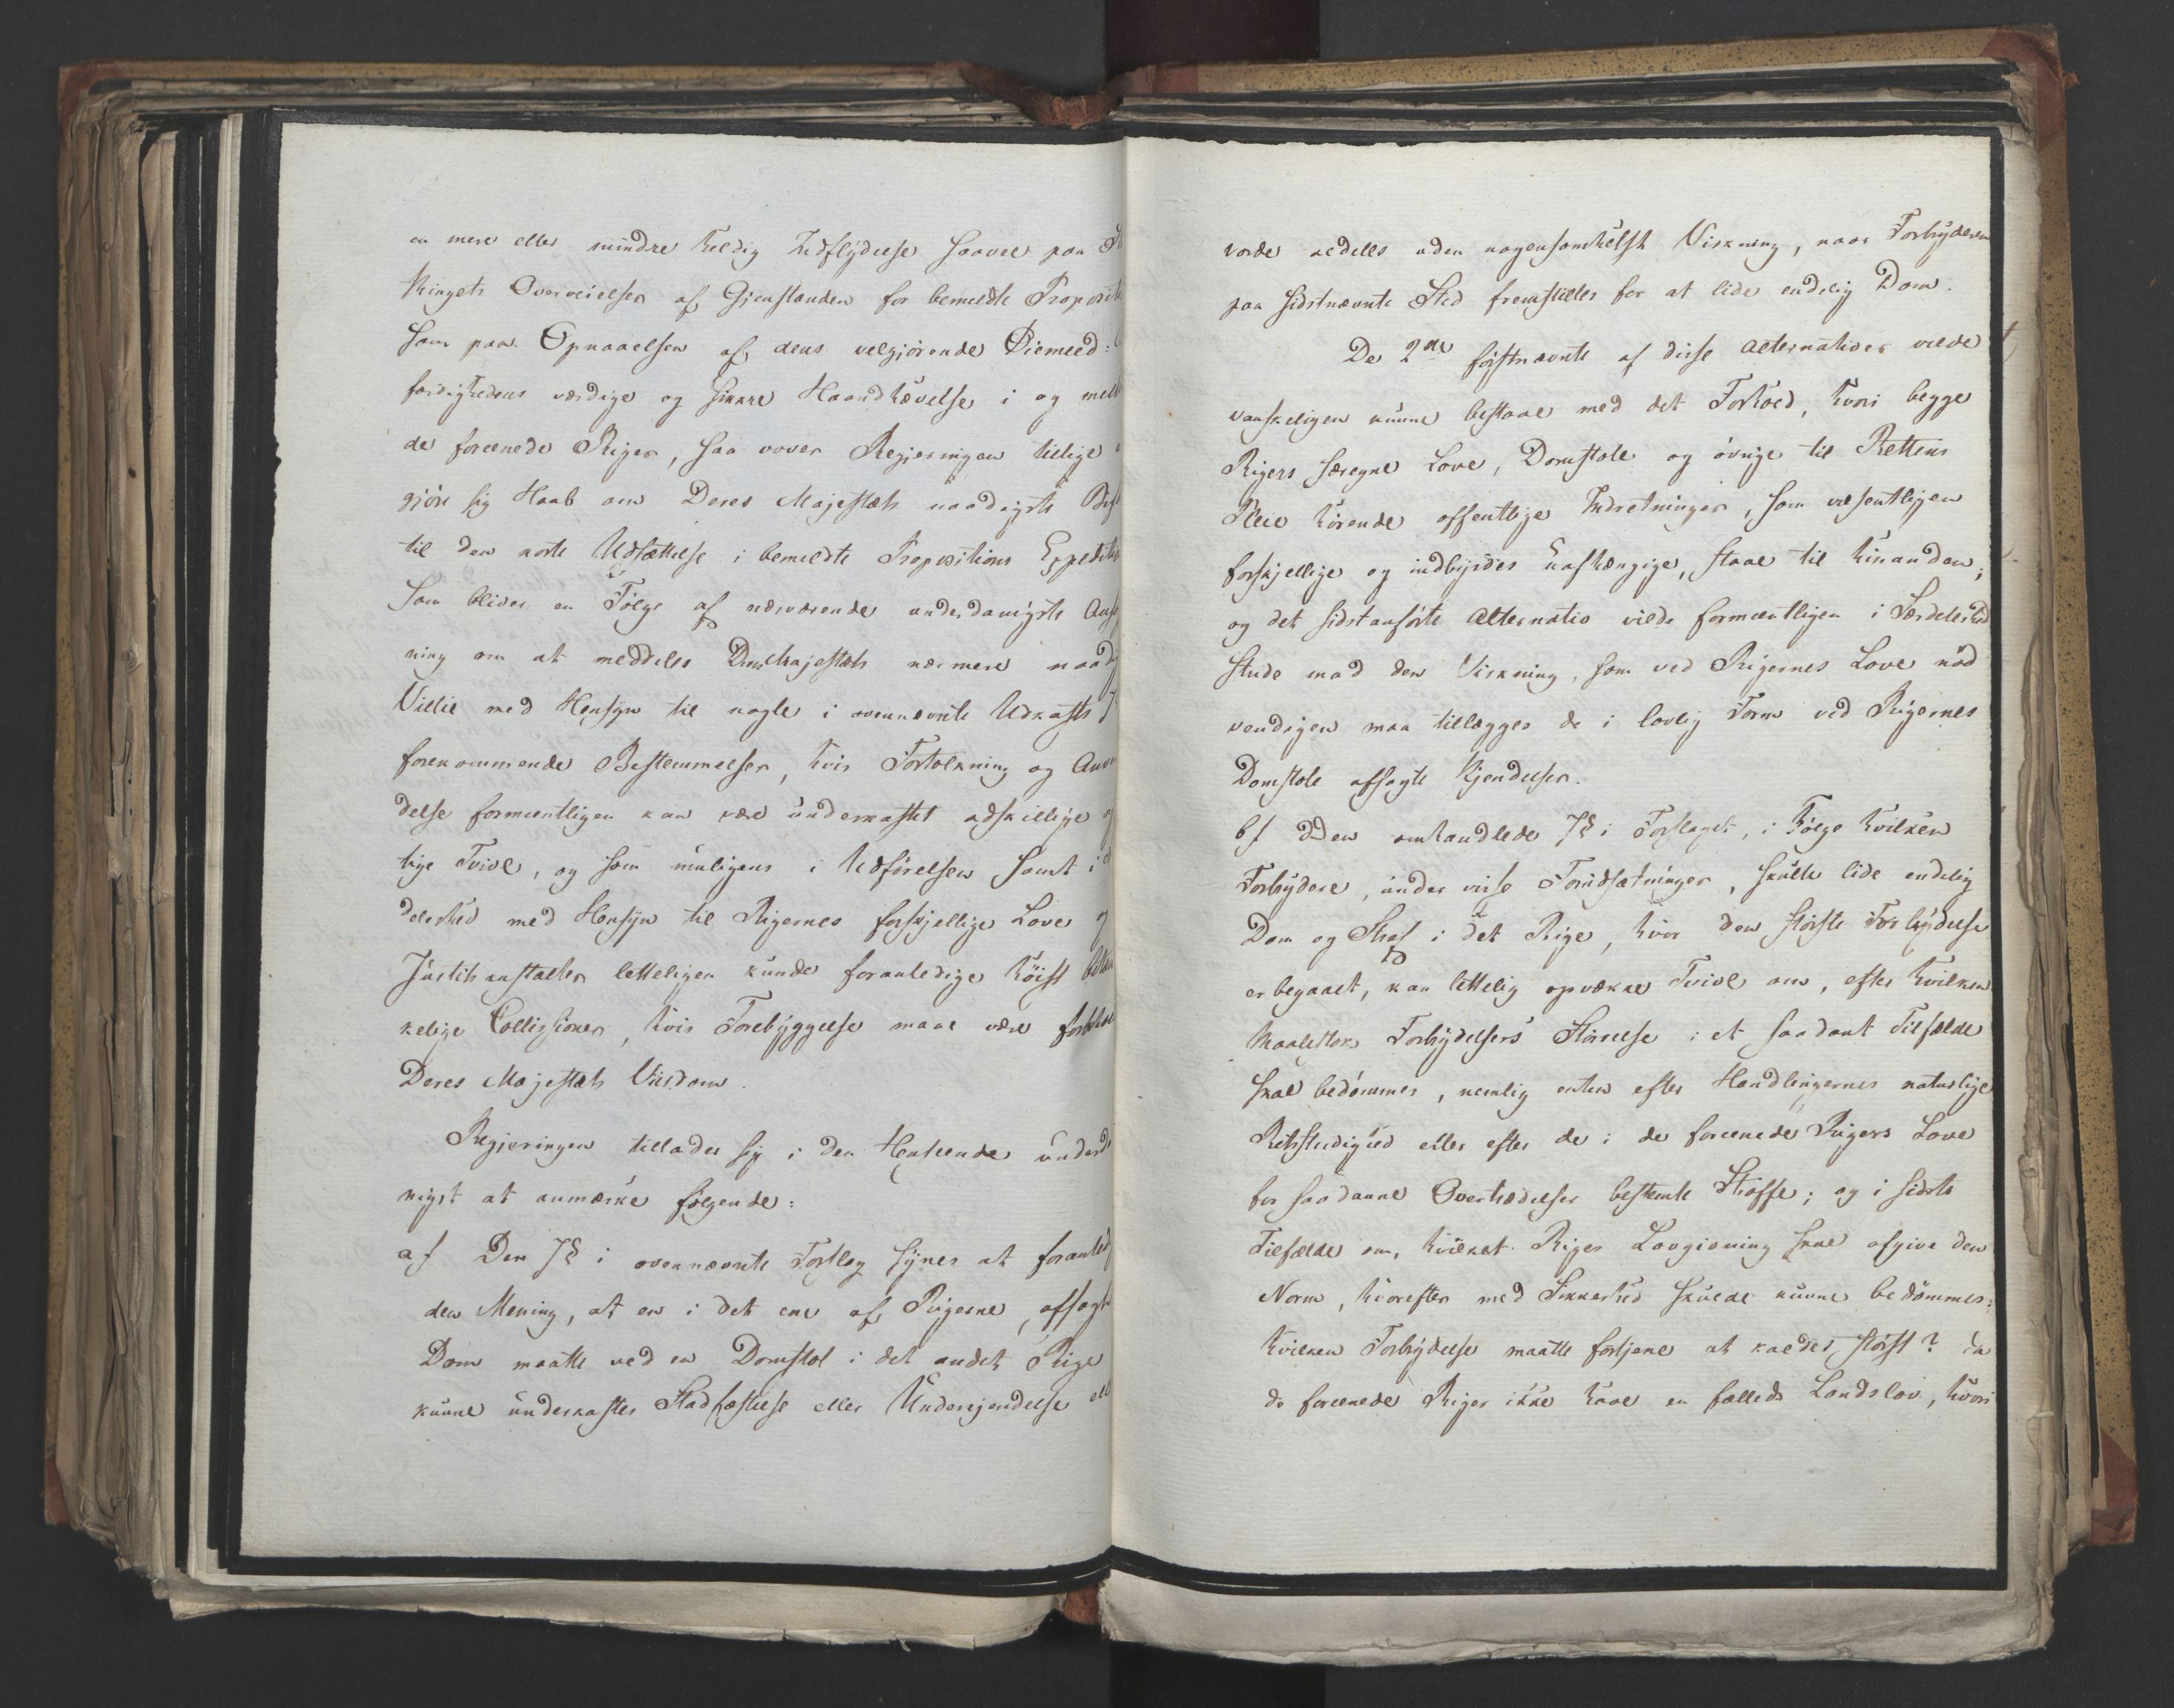 en mere eller mindre heldig Indflydelse saavel paa St
thingets Overveielser af Gjenstanden for bemeldte Proposit
som paa Opnaaelsen af dens velgjörende Öiemeed:
færdighedens værdige og sikkre Haandhævelse i og mell
de forenede Riger, saa vover Regjeringen tillige
gjöre sig Haab om Deres Majestæts naadigste Bif
til den korte Udsættelse i bemeldte Propositions Expedition
som bliver en Fölge af nærværende underdanigste Ans
ning om at meddeles Deres Majestæts nærmere naadi
Villie med Hensyn til nogle i ovennævnte Udkasts 7
forekommende Bestemmelser, hvis Fortolkning og Anven
delse formeentligen kan være underkastet adskillige
tige Tvivl, og som muligens i Udförelsen samt i
deleshed med Hensyn til Rigernes forskjellige Love og
Justitsanstalter letteligen kunde foranledige höist betæn
kelige Collissioner, hvis Forebyggelse maae være forbehol
Deres Majestæts Viisdom.
Regjeringen tillader sig i den Henseende underda
nigst at anmærke følgende:
a/ Den 7§ i ovennævnte Forslag synes at foranled
den Mening, at en i det ene af Rigerne, afsagt
Dom maatte ved en Domstol i det andet Rige
kunne underkastes Stadfæstelse eller Underkjendelse ell
vorde aldeles uden nogensomhelst Virkning, naar Forbryderen
paa sidstnævnte Sted fremstilles for at lide endelig Dom.
De 2de förstnævnte af disse Alternativer vilde
vanskeligen kunne bestaae med det Forhold, hvori begge
Rigers særegne Love, Domstole og övrige til Rettens
Pleie hörende offentlige Indretninger, som væsentligen
forskjellige og indbyrdes uafhængige, staae til hinanden;
og det sidstanförte Alternativ vilde formeentligen i Særdeleshed
stride mod den Virkning, som ved Rigernes Love nöd
vendigen maa tillægges de i lovlig Form ved Rigernes
Domstole afsagte Kjendelser.
b/ Den omhandlede 7§ i Forslaget, i Fölge hvilken
Forbrydere, under visse Forudsætninger, skulle lide endelig
Dom og Straf i det Rige, hvor den störste Forbrydelse
er begaaet, kan lettelig opvække Tvivl om, efter hvilken
Maalestok Forbrydelsers Störrelse i et saadant Tilfælde
skal bedömmes, nemlig enten efter Handlingernes naturlige
Retsstridighed eller efter de i de forenede Rigers Love
for saadanne Overtrædelser bestemte Straffe; og i sidste
Tilfælde om, hvilket Riges Lovgivning skal afgive den
Norm, hvorefter med Sikkerhed skulde kunne bedömmes:
hvilken Forbrydelse maatte fortjene at kaldes störst? da
de forenede Riger ikke have en fælleds Landslov, hvori